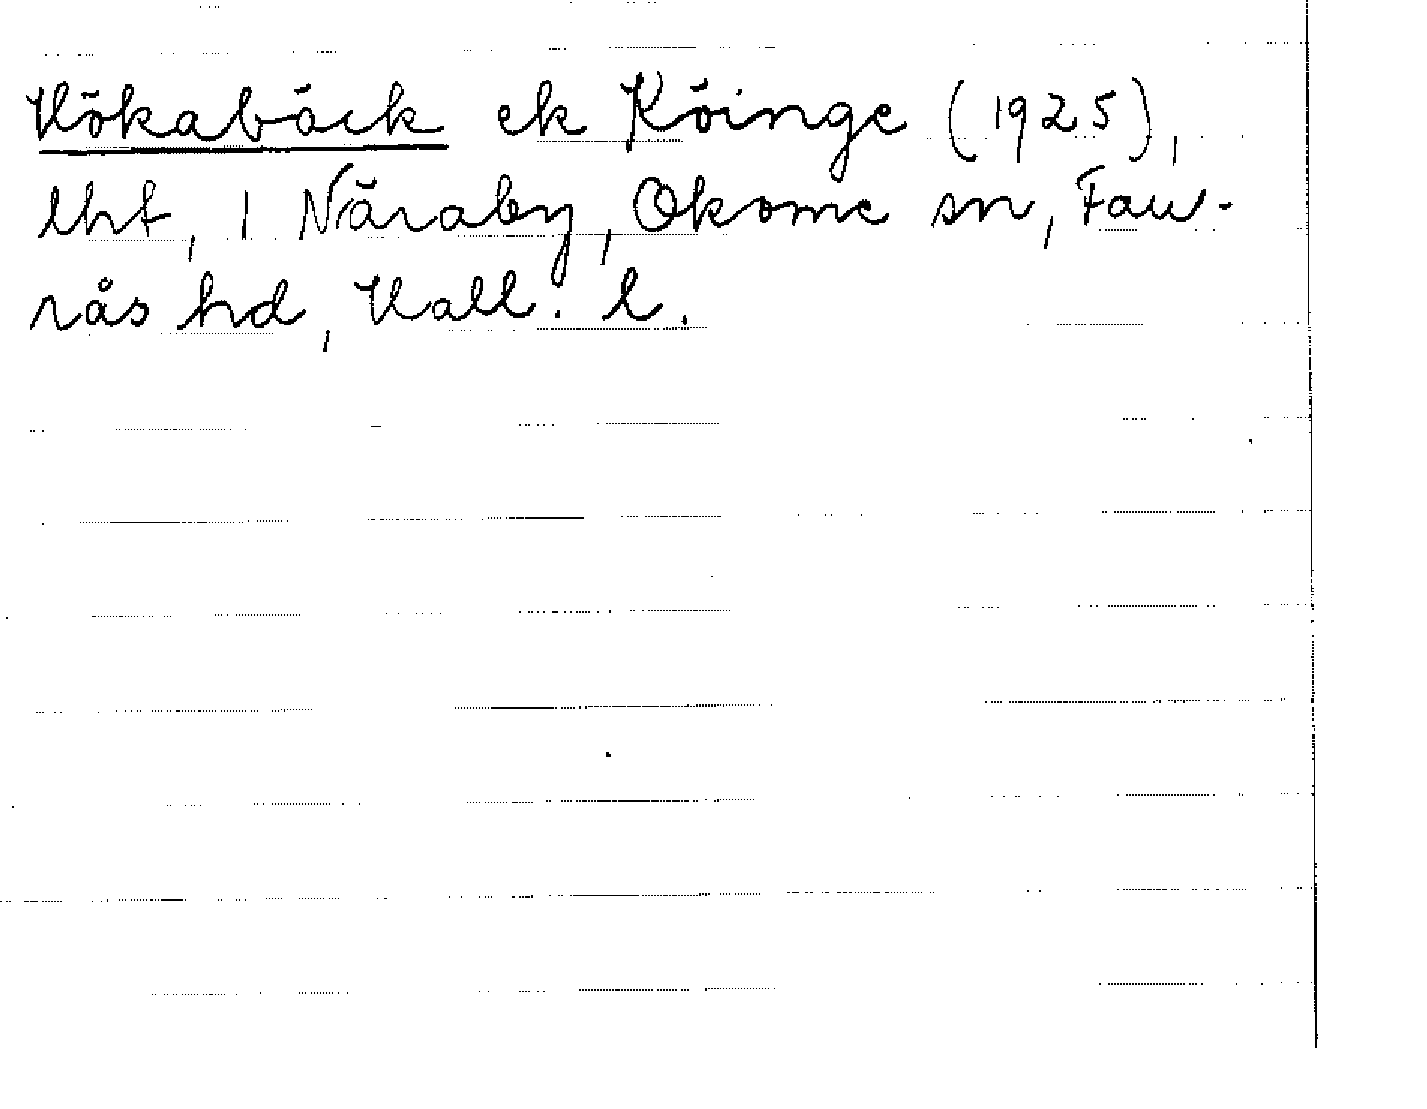 Hökabäck ek Köinge (1925),
lht, 1 Näraby, Okome sn, Fau-
rås hd, Hall. l.